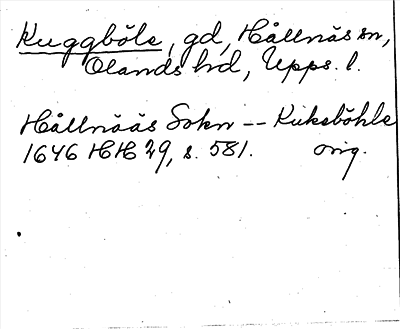 Kuggböle, gd, Hållnäs sn,
Olands hd, Upps. l.
Hållnääs Sokn -- Kuksböhle
1646 HH 29, s. 581. orig.